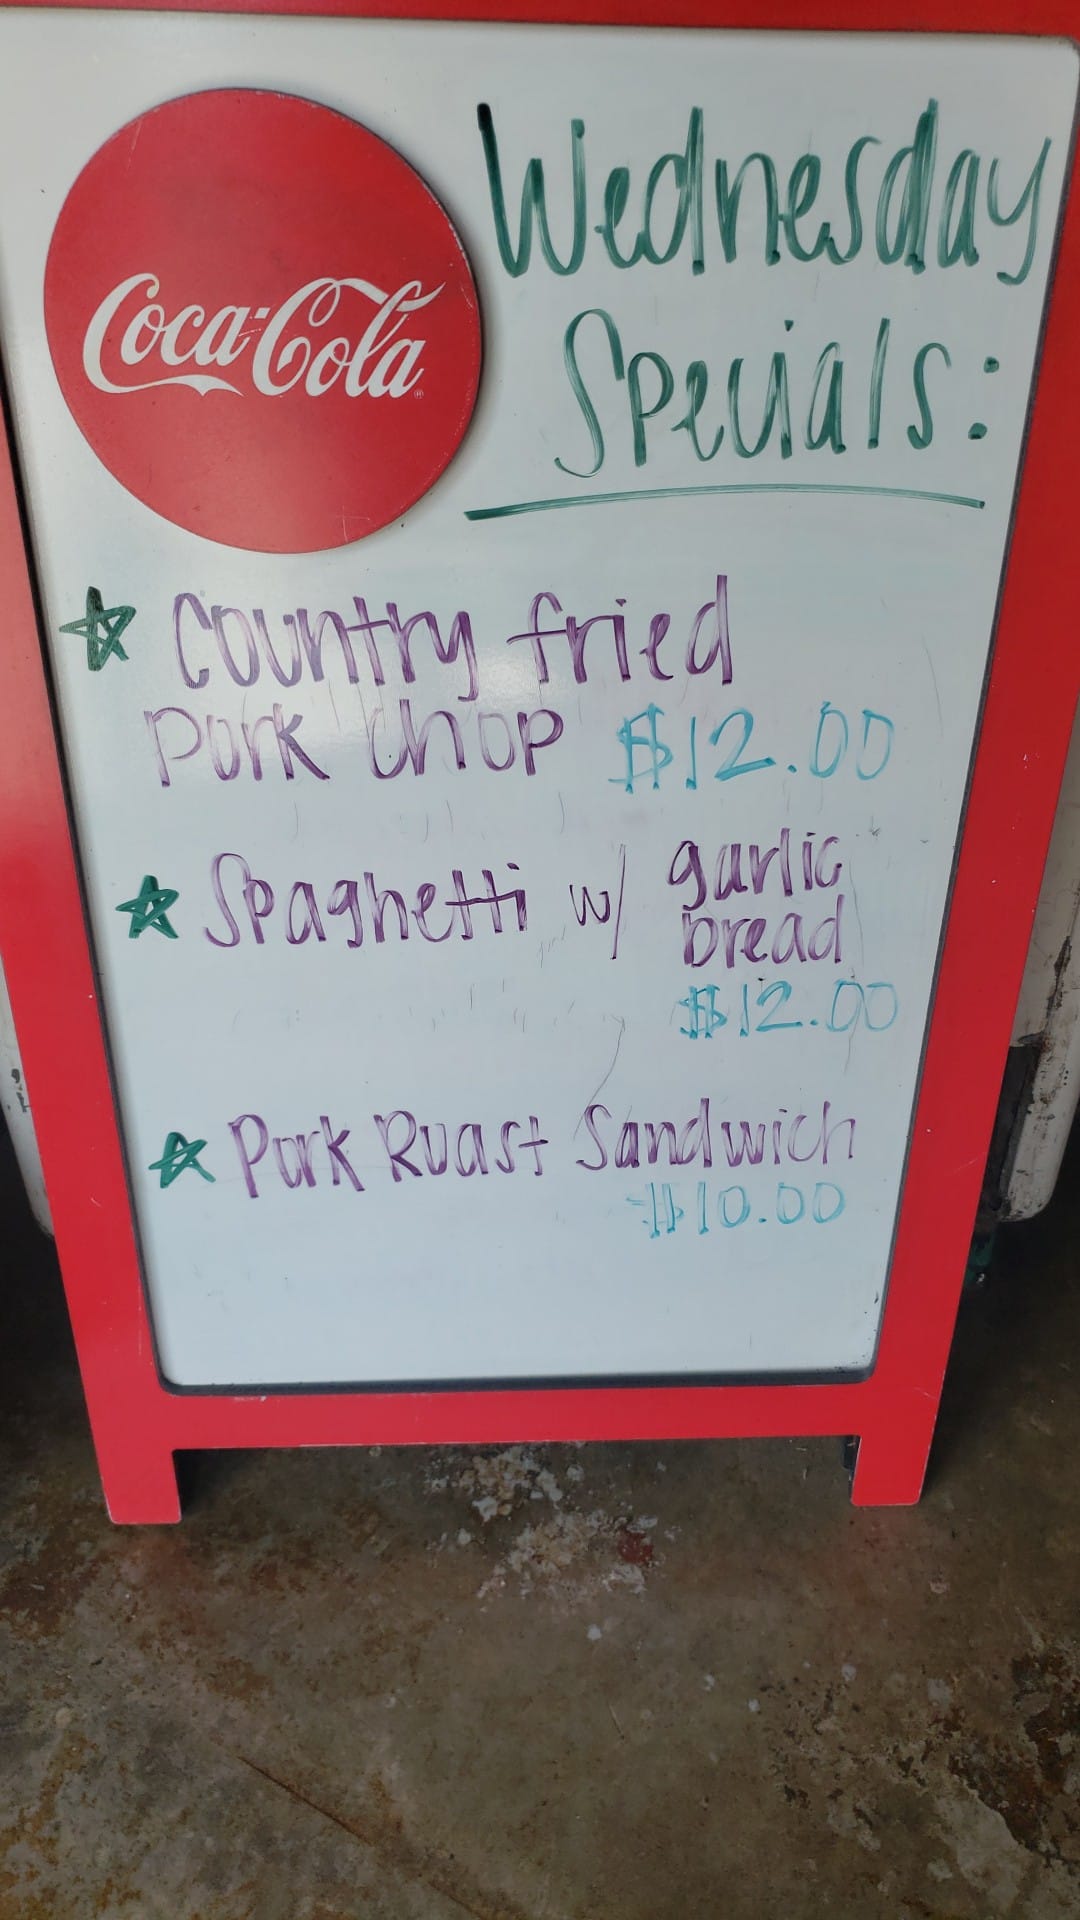 Coca-Cola
Wednesday
Specials:
Country fried
Pork chop $12.00
Spaghetti w/ garlic
bread
$12.00
Pork Roast Sandwich
$10.00